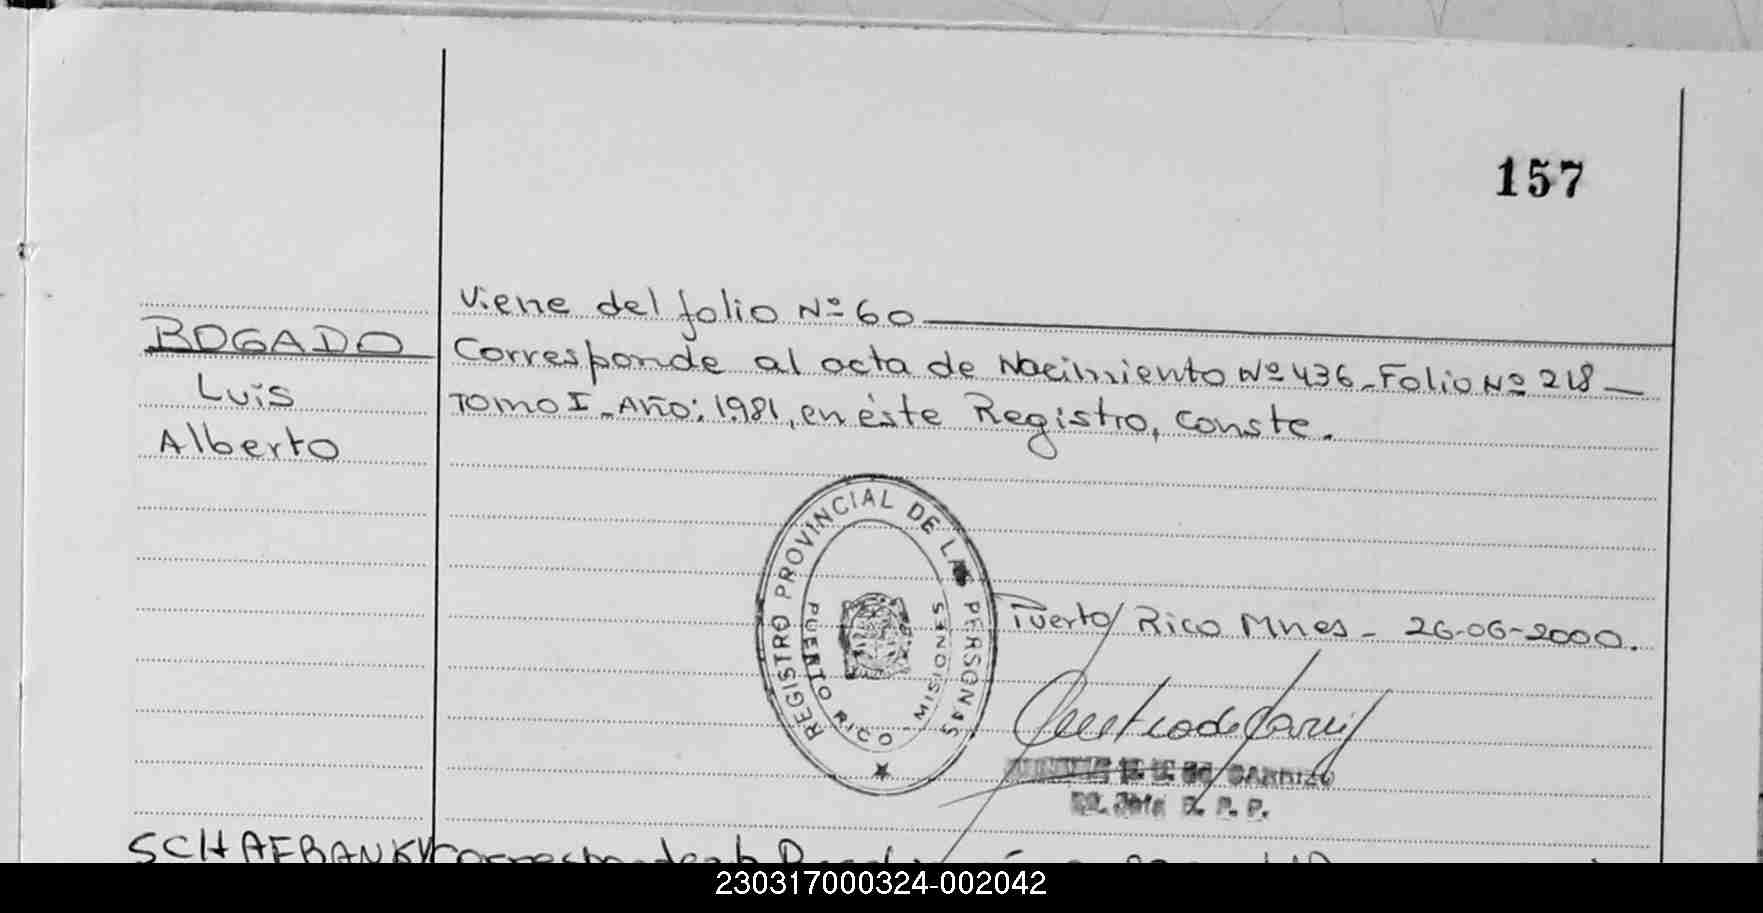 157
Viene del folio Nº 60
BOGADO
Luis
Alberto
Corresponde al acta de Nacimiento Nº 436 - Folio Nº 218 -
Tomo I - Año: 1981, en éste Registro, Conste.
REGISTRO PROVINCIAL DE LAS PERSONAS
PUERTO RICO - MISIONES
Puerto Rico Mnes - 26-06-2000.
DE CARRIZO
R. P. P.
SCHAFRANKY
230317000324-002042